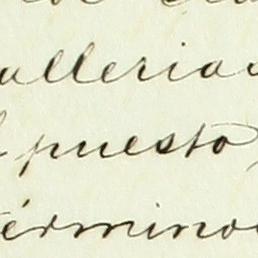 allerias
puesto,
términos